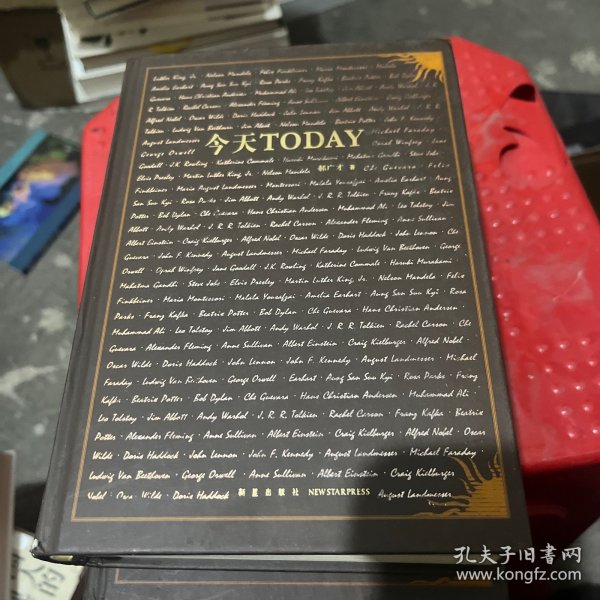 Luther King Jr. · Nelson Mandela · Felix Finkbeiner · Maria Montessori · Malala
Amelia Earhart · Aung San Suu Kyi · Rosa Parks · Franz Kafka · Beatrix Potter · Bob Dylan
Guevara · Hans Christian Andersen · Muhammad Ali · Leo Tolstoy · Jim Abbott · Andy Warhol · J. R.
R. Tolkien · Rachel Carson · Alexander Fleming · Anne Sullivan · Albert Einstein · Craig
Alfred Nobel · Oscar Wilde · Doris Haddock · John Lennon
Tolkien · Ludwig Van Beethoven · Jim Abbott · Nelson Mandela · Beatrix Potter · John F. Kennedy
August Landmesser
今天TODAY
Michael Faraday
George Orwell
Oprah Winfrey · Jane
Goodall · J.K. Rowling · Katherine Commale · Haruki Murakami · Mahatma Gandhi · Steve Jobs
Elvis Presley · Martin Luther King, Jr. · Nelson Mandela
郝广才 著
Che Guevara · Felix
Finkbeiner · Maria August Landmesser · Montessori · Malala Yousafzai · Amelia Earhart · Aung
San Suu Kyi · Rosa Parks · Jim Abbott · Andy Warhol · J. R. R. Tolkien · Franz Kafka · Beatrix
Potter · Bob Dylan · Che Guevara · Hans Christian Andersen · Muhammad Ali · Leo Tolstoy · Jim
Abbott · Andy Warhol · J. R. R. Tolkien · Rachel Carson · Alexander Fleming · Anne Sullivan
Albert Einstein · Craig Kielburger · Alfred Nobel · Oscar Wilde · Doris Haddock · John Lennon · Che
Guevara · John F. Kennedy · August Landmesser · Michael Faraday · Ludwig Van Beethoven · George
Orwell · Oprah Winfrey · Jane Goodall · J.K. Rowling · Katherine Commale · Haruki Murakami
Mahatma Gandhi · Steve Jobs · Elvis Presley · Martin Luther King, Jr. · Nelson Mandela · Felix
Finkbeiner · Maria Montessori · Malala Yousafzai · Amelia Earhart · Aung San Suu Kyi · Rosa
Parks · Franz Kafka · Beatrix Potter · Bob Dylan · Che Guevara · Hans Christian Andersen
Muhammad Ali · Leo Tolstoy · Jim Abbott · Andy Warhol · J. R. R. Tolkien · Rachel Carson · Che
Guevara · Alexander Fleming · Anne Sullivan · Albert Einstein · Craig Kielburger · Alfred Nobel
Oscar Wilde · Doris Haddock · John Lennon · John F. Kennedy · August Landmesser · Michael
Faraday · Ludwig Van Beethoven · George Orwell · Earhart · Aung San Suu Kyi · Rosa Parks · Franz
Kafka · Beatrix Potter · Bob Dylan · Che Guevara · Hans Christian Andersen · Muhammad Ali
Leo Tolstoy · Jim Abbott · Andy Warhol · J. R. R. Tolkien · Rachel Carson · Franz Kafka · Beatrix
Potter · Alexander Fleming · Anne Sullivan · Albert Einstein · Craig Kielburger · Alfred Nobel · Oscar
Wilde · Doris Haddock · John Lennon · John F. Kennedy · August Landmesser · Michael Faraday
Ludwig Van Beethoven · George Orwell · Anne Sullivan · Albert Einstein · Craig Kielburger
Nobel · Oscar Wilde · Doris Haddock
新星出版社 NEW STAR PRESS
August Landmesser
孔夫子旧书网
www.kongfz.com